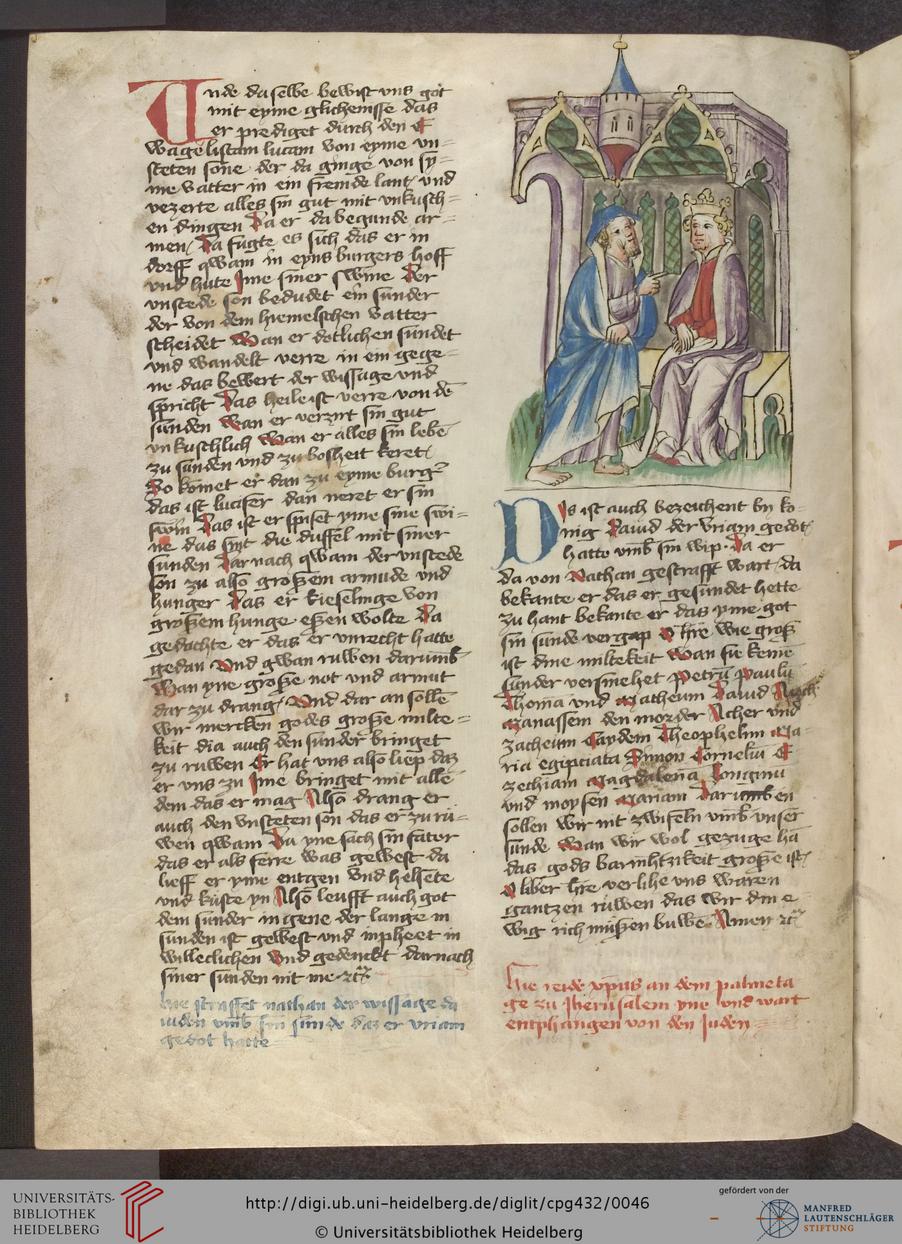 Unde daselbe bewist vns got
mit eyme glichenisse das
er prediget durch den E
wagelistam lucam von eyme vn=
steten sone der da ginge von sy=
me vatter in ein fremde lant vnd
verzerte alles sin gut mit vnkusch=
en dingen Da er da begande ar=
men Da fugte es sich das er in
dorff qwam in eyns burgers hoff
vnd hute Ime siner swine Der
vnstede son bedudet ein sunder
der von dem hiemelschen vatter
scheidet Wan er dotlichen sundet
vnd wandelt verre in ein gege=
ne das bewert der wissage vnd
spricht Das heile ist verre von dē
sunden Wan er verzirt sin gut
vnkuschlich Wan er alles sin lebē
zu sunden vnd zu bosheit keret
So komet er dan zu eyme burgr
das ist lucifer dan neret er sin
swin Das ist er spiset yme sine swi=
ne das sint die duffel mit siner
sunden Darnach qwam der vnstede
son zu also großem armude vnd
hunger Das er kieselinge von
großem hunge eßen wolte Da
gedachte er das er unrecht hatte
gedan Vnd gwan ruwen darumb
Wan yne große not vnd armut
dar zu drang Vnd dar an sollē
wir mercken godes große milte=
keit dia auch den sunder bringet
zu ruwen Er hat vns also liep daz
er vns zu Ime bringet mit alle
dem das er mag Also drang er
auch den vnsteten son das er zu ru=
wen qwam Da yne sach sin fater
das er als ferre was gewest da
lieff er yme entgen vnd helsete
vnd kuste yn Also leufft auch got
dem sunder ingene der lange in
sunden ist gewest vnd inpheet in
willeclichen Vnd gedenckt darnach
siner sunden nit me
hie straffet nathan der wissage da
uiden vmb sin sunde daz er vriam
gedot hatte
Dis ist auch bezeichent by ko=
nig Dauid der Vriam gedot
hatte vmb sin wip Da er
da von Nathan gestrafft wart da
bekante er das er gesundet hette
zu hant bekante er das yme got
sin sunde vergap O h̄re wie groß
ist dine miltekeit Wan sie keinē
sunder versmehet Petrū Paulū
Thoma vnd Matheum Dauid Asach
Manassem den morder Acher vnd
zacheum Caydem Theophelm Ma
ria egipciata Simon Cornelium E
zechiam Magdalena Longinū
vnd moysen Mariam Darumb en
sollen wir nit zwifeln vmb vnser
sunde Wan wir wol gezuge hā
das gods barmhtzikeit große ist
O liber h̄re verlihe vns waren
gantzen ruwen das wir din e
wig rich mußen buwe Amen
Hie reide xp̄us an dem palmeta
ge zu Jherusalem yne vnd wart
entphangen von den Juden
UNIVERSITÄTS-
BIBLIOTHEK
HEIDELBERG
http://digi.ub.uni-heidelberg.de/diglit/cpg432/0046
© Universitätsbibliothek Heidelberg
gefördert von der
MANFRED
LAUTENSCHLÄGER
STIFTUNG